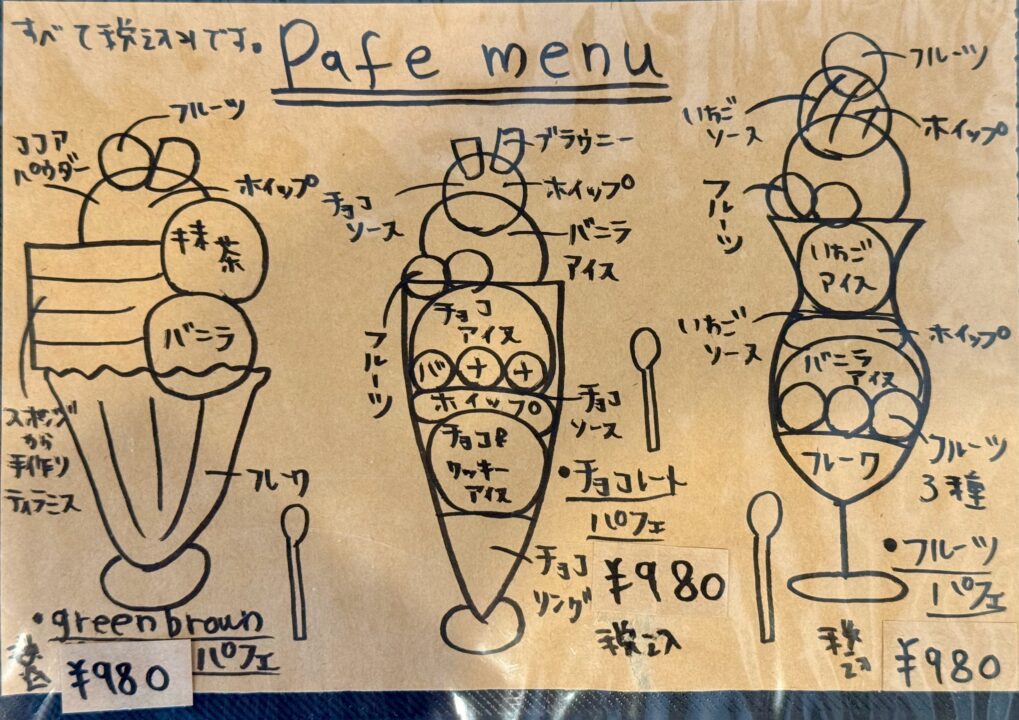 すべて税込みです。
Pafe menu
フルーツ
ココア
パウダー
ホイップ
抹茶
バニラ
スポンジ
から
手作り
ティラミス
フレーク
・greenbrown
パフェ
税込
¥980
ブラウニー
ホイップ
チョコ
ソース
バニラ
アイス
フルーツ
チョコ
アイス
バナナ
ホイップ
チョコ
ソース
チョコ&
クッキー
アイス
チョコ
リング
・チョコレート
パフェ
¥980
税込
フルーツ
いちご
ソース
ホイップ
フルーツ
いちご
アイス
いちご
ソース
ホイップ
バニラ
アイス
フルーツ
3種
フレーク
・フルーツ
パフェ
税込
¥980